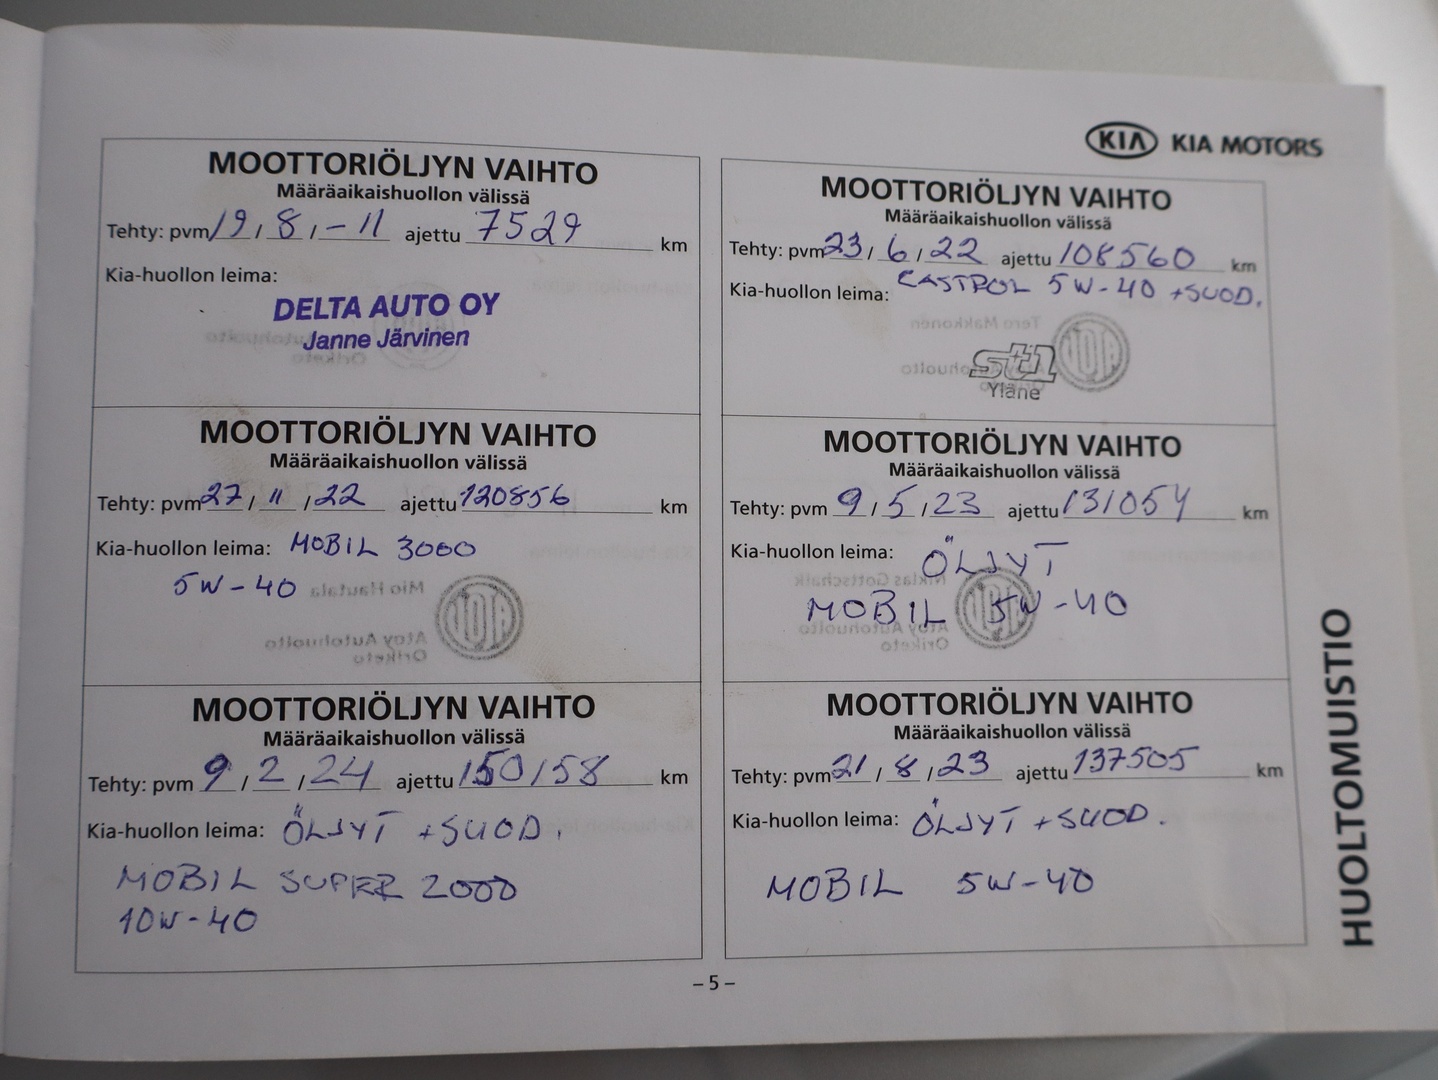 KIA KIA MOTORS
MOOTTORIÖLJYN VAIHTO
Määräaikaishuollon välissä
Tehty: pvm 19 / 8 / -11 ajettu 7529 km
Kia-huollon leima:
DELTA AUTO OY
Janne Järvinen
MOOTTORIÖLJYN VAIHTO
Määräaikaishuollon välissä
Tehty: pvm 23 / 6 / 22 ajettu 108560 km
Kia-huollon leima: CASTROL 5W-40 +SUOD.
st1
Yläne
MOOTTORIÖLJYN VAIHTO
Määräaikaishuollon välissä
Tehty: pvm 27 / 11 / 22 ajettu 120856 km
Kia-huollon leima: MOBIL 3000
5W-40
MOOTTORIÖLJYN VAIHTO
Määräaikaishuollon välissä
Tehty: pvm 9 / 5 / 23 ajettu 131054 km
Kia-huollon leima: ÖLJYT
MOBIL 5W-40
MOOTTORIÖLJYN VAIHTO
Määräaikaishuollon välissä
Tehty: pvm 9 / 2 / 24 ajettu 150158 km
Kia-huollon leima: ÖLJYT +SUOD.
MOBIL SUPER 2000
10W-40
MOOTTORIÖLJYN VAIHTO
Määräaikaishuollon välissä
Tehty: pvm 21 / 8 / 23 ajettu 137505 km
Kia-huollon leima: ÖLJYT +SUOD.
MOBIL 5W-40
HUOLTOMUISTIO
– 5 –